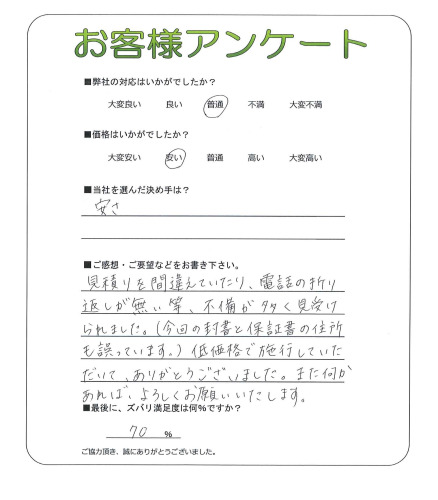 お客様アンケート
■弊社の対応はいかがでしたか？
大変良い 良い 普通 不満 大変不満
■価格はいかがでしたか？
大変安い 安い 普通 高い 大変高い
■当社を選んだ決め手は？
安さ
■ご感想・ご要望などをお書き下さい。
見積りを間違えていたり、電話の折り
返しが無い等、不備が多く見受け
られました。(今回の封書と保証書の住所
も誤っています。) 低価格で施行していた
だいて、ありがとうございました。また何か
あれば、よろしくお願いいたします。
■最後に、ズバリ満足度は何％ですか？
70 ％
ご協力頂き、誠にありがとうございました。